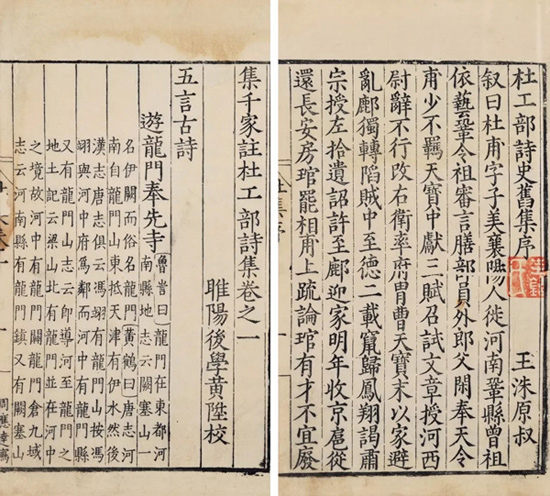 杜工部詩史舊集序
王洙原叔
叙曰杜甫字子美襄陽人徙河南鞏縣曾祖
依藝鞏令祖審言膳部員外郎父閑奉天令
甫少不羈天寶中獻三賦召試文章授河西
尉辭不行改右衛率府胄曹天寶末以家避
亂鄜獨轉陷賊中至德二載竄歸鳳翔謁肅
宗授左拾遺詔許至鄜迎家明年收京扈從
還長安房琯罷相甫上疏論琯有才不宜廢
集千家註杜工部詩集卷之一
睢陽後學黃陞校
五言古詩
遊龍門奉先寺
魯訔曰龍門在東都河
南縣地志云闕塞山一
名伊闕而俗名龍門黃鶴曰唐志河
南自龍門山東抵天津有伊水然後
漢志唐志俱云馮翊有龍門山按馮
翊與河中府爲鄰而河中有龍門縣
又有龍門山志云卽導河至龍門之
地土記云梁山北有龍門並在河中
之境故河中有龍門關龍門倉九域
志云河南縣有龍門鎮又有闕塞山